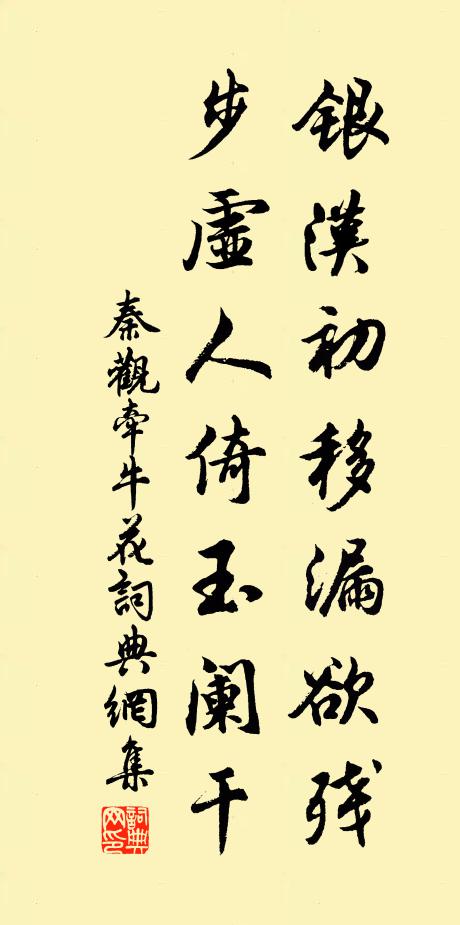 银汉初移漏欲残
步虚人倚玉阑干
秦觀牽牛花詞典網集
詞典网印